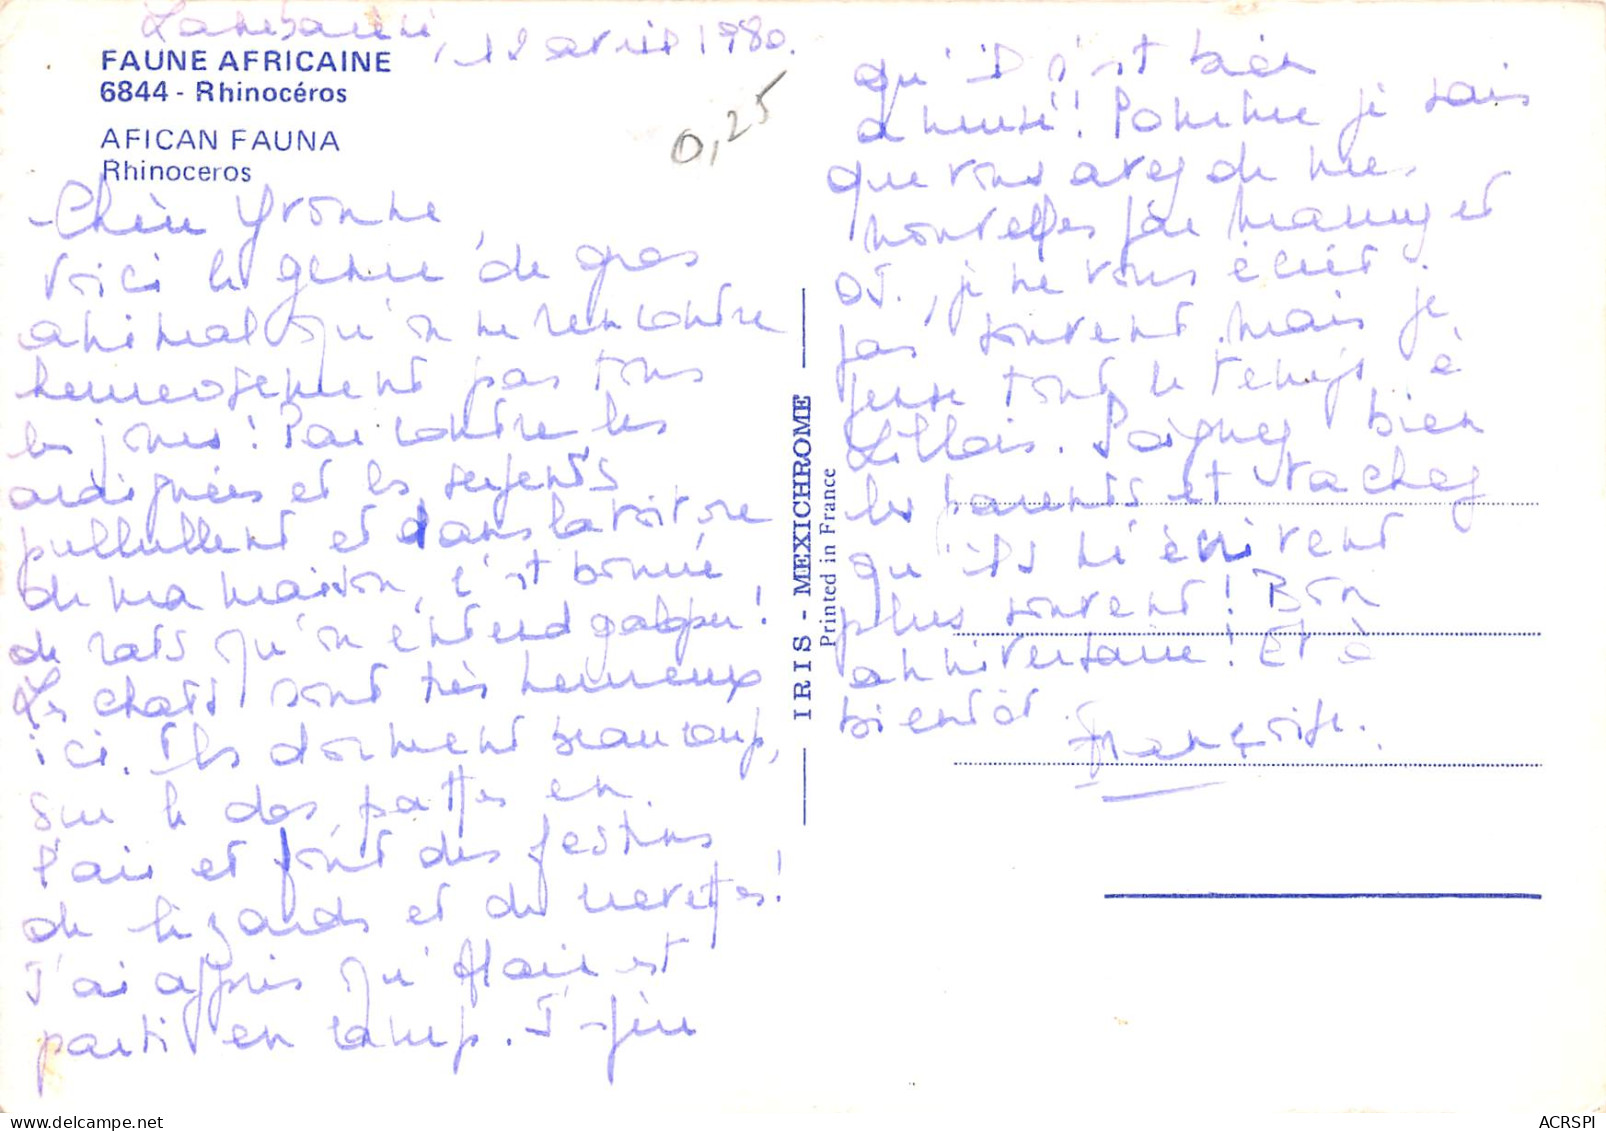 Lambaréné, 12 avril 1980.
FAUNE AFRICAINE
6844 - Rhinocéros
AFICAN FAUNA
Rhinoceros
0,25
Chère Yvonne,
Voici le genre de gros
animal qu'on ne rencontre
heureusement pas tous
les jours ! Par contre les
araignées et les serpents
pullullent et dans la toiture
de ma maison, c'est bourré
de rats qu'on entend galoper !
Les chats sont très heureux
ici. Ils dorment beaucoup,
sur le dos, pattes en
l'air et font des festins
de lézards et de crevettes !
J'ai appris qu'Alain est
parti en camp. J'espère
qu'il s'est bien
amusé ! Comme je sais
que vous avez de mes
nouvelles par maman et
, je ne vous écris
pas souvent mais je
pense tout le temps à
Lillois. Soignez bien
les parents et tachez
qu'ils m'écrivent
plus souvent ! Bon
anniversaire ! Et à
bientôt.
Françoise.
IRIS - MEXICHROME
Printed in France
ACRSPI